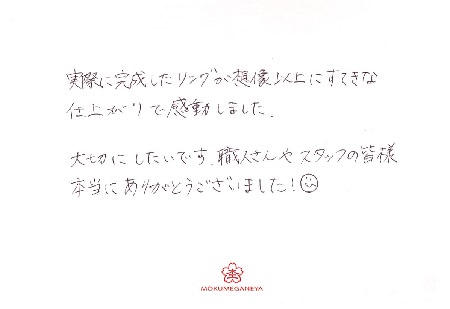 実際に完成したリングが想像以上にすてきな
仕上がりで感動しました。
大切にしたいです。職人さんやスタッフの皆様
本当にありがとうございました!
MOKUMEGANEYA